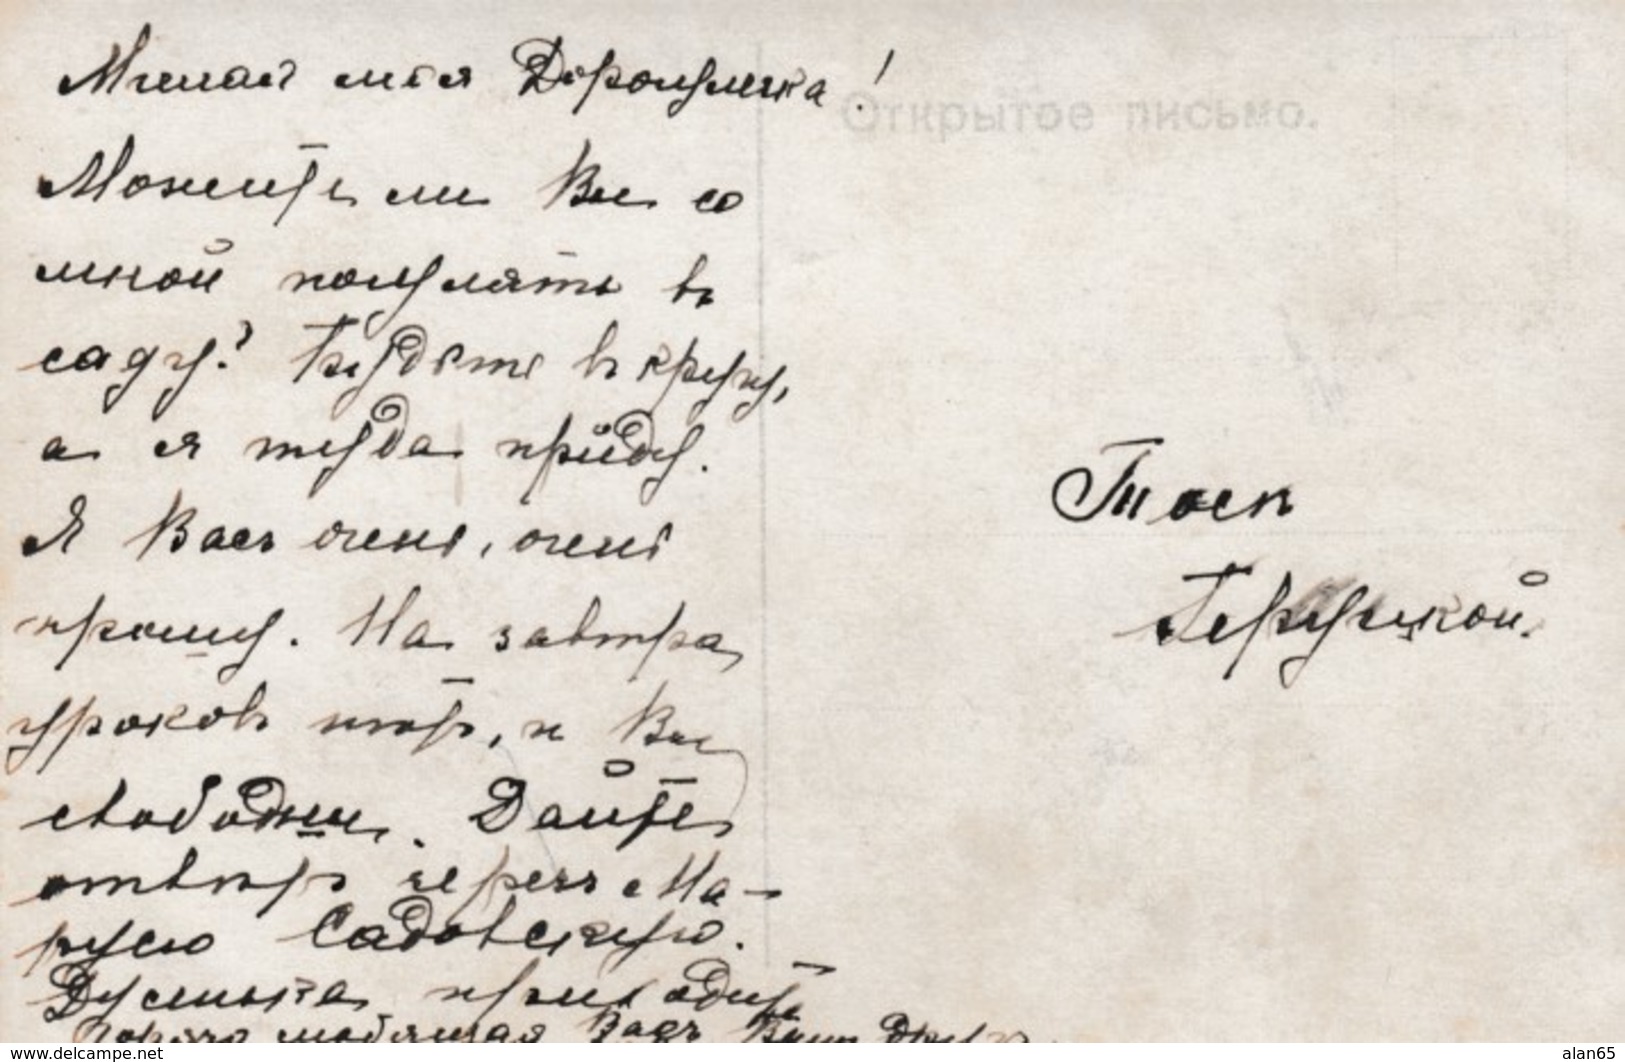 Милая моя Дорогулечка!
Открытое письмо.
Можете ли Вы со
мной погулять въ
саду? Будьте въ кругу,
а я туда прійду.
Я Васъ очень, очень
прошу. На завтра
уроковъ нѣтъ, и Вы
свободны. Дайте
отвѣтъ черезъ Ма-
русю Садовскую.
Дусенька приходите
Горячо любящая Васъ Ваш Друг
Тосѣ
www.delcampe.net
alan65